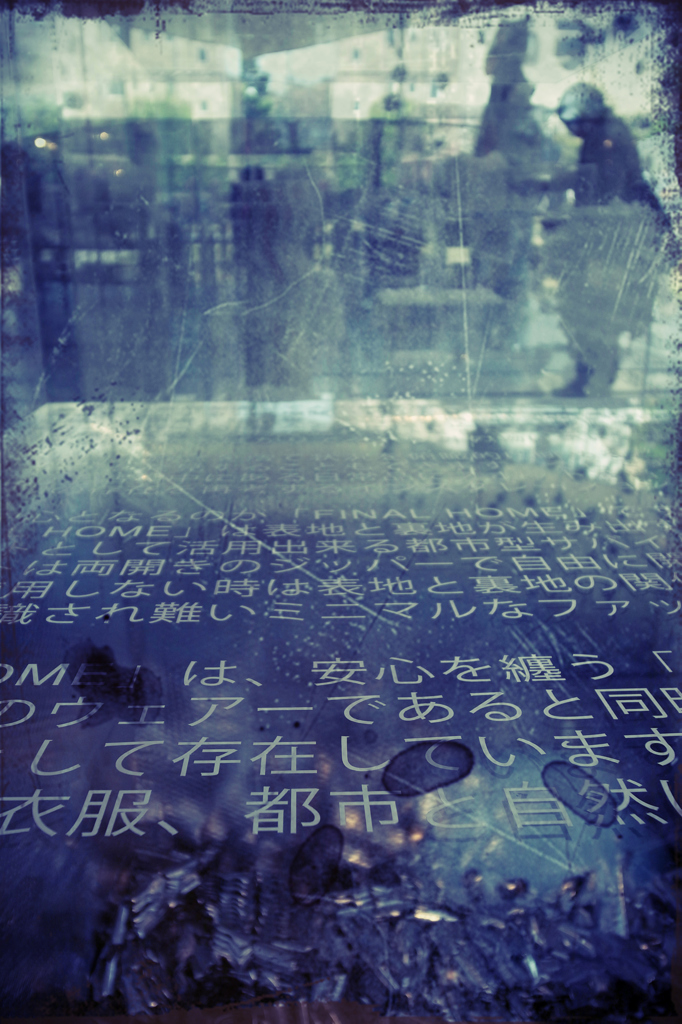 となるのが「FINAL HOME」
HOME」は表地と裏地が生み出
として活用出来る都市型サバイ
は両開きのジッパーで自由に
用しない時は表地と裏地の関
識され難いミニマルなファッ
OME」は、安心を纏う「
のウェアーであると同時
して存在しています
衣服、都市と自然